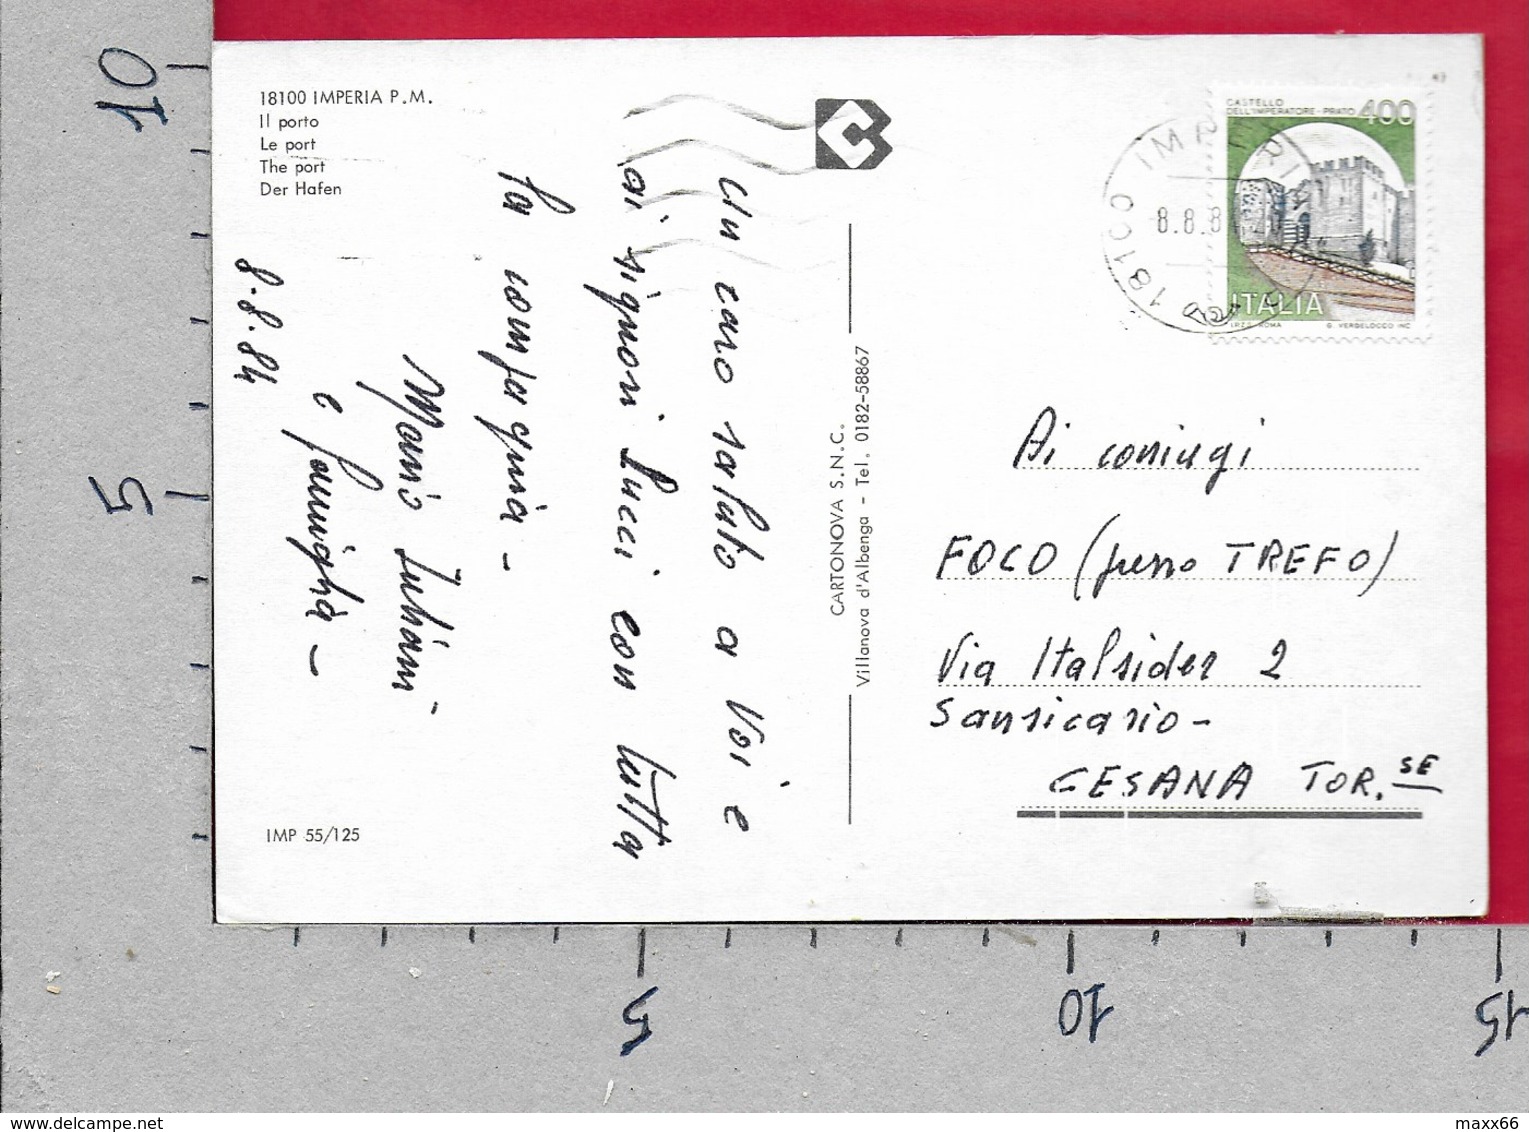 18100 IMPERIA P.M.
Il porto
Le port
The port
Der Hafen
8.8.84
Un caro saluto a Voi e
ai signori Pucci con tutta
la compagnia -
Mario Iuliani
e famiglia -
IMP 55/125
CARTONOVA S.N.C.
Villanova d'Albenga - Tel. 0182-58867
CASTELLO
DELL'IMPERATORE - PRATO 400
ITALIA
I.P.Z.S. ROMA G. VERDELOCCO INC.
18100 IMPERIA
8.8.8
Ai coniugi
FOCO (presso TREFO)
Via Italsider 2
Sansicario -
CESANA TOR.SE
10
5
5
10
15
www.delcampe.net
maxx66